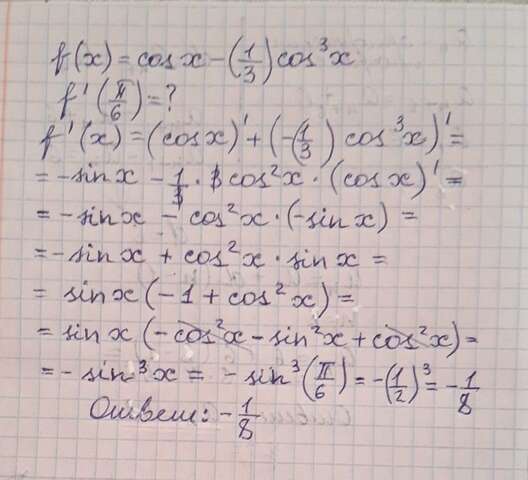 f(x) = cos x - (1/3) cos³x
f'(π/6) = ?
f'(x) = (cos x)' + (-(1/3) cos³x)' =
= -sin x - 1/3 · 3 cos²x · (cos x)' =
= -sin x - cos²x · (-sin x) =
= -sin x + cos²x · sin x =
= sin x (-1 + cos²x) =
= sin x (-cos²x - sin²x + cos²x) =
= -sin³x = -sin³(π/6) = -(1/2)³ = -1/8
Ответ: -1/8